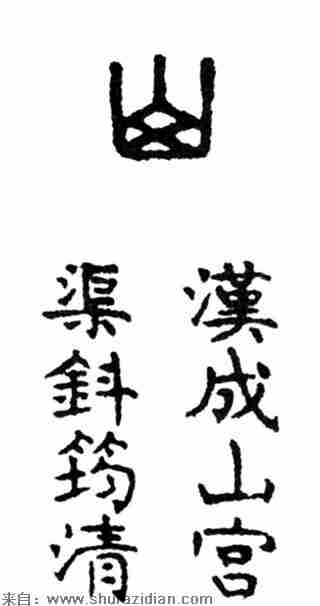 山
漢成山宮
渠鈄筠清
来自：www.shufazidian.com